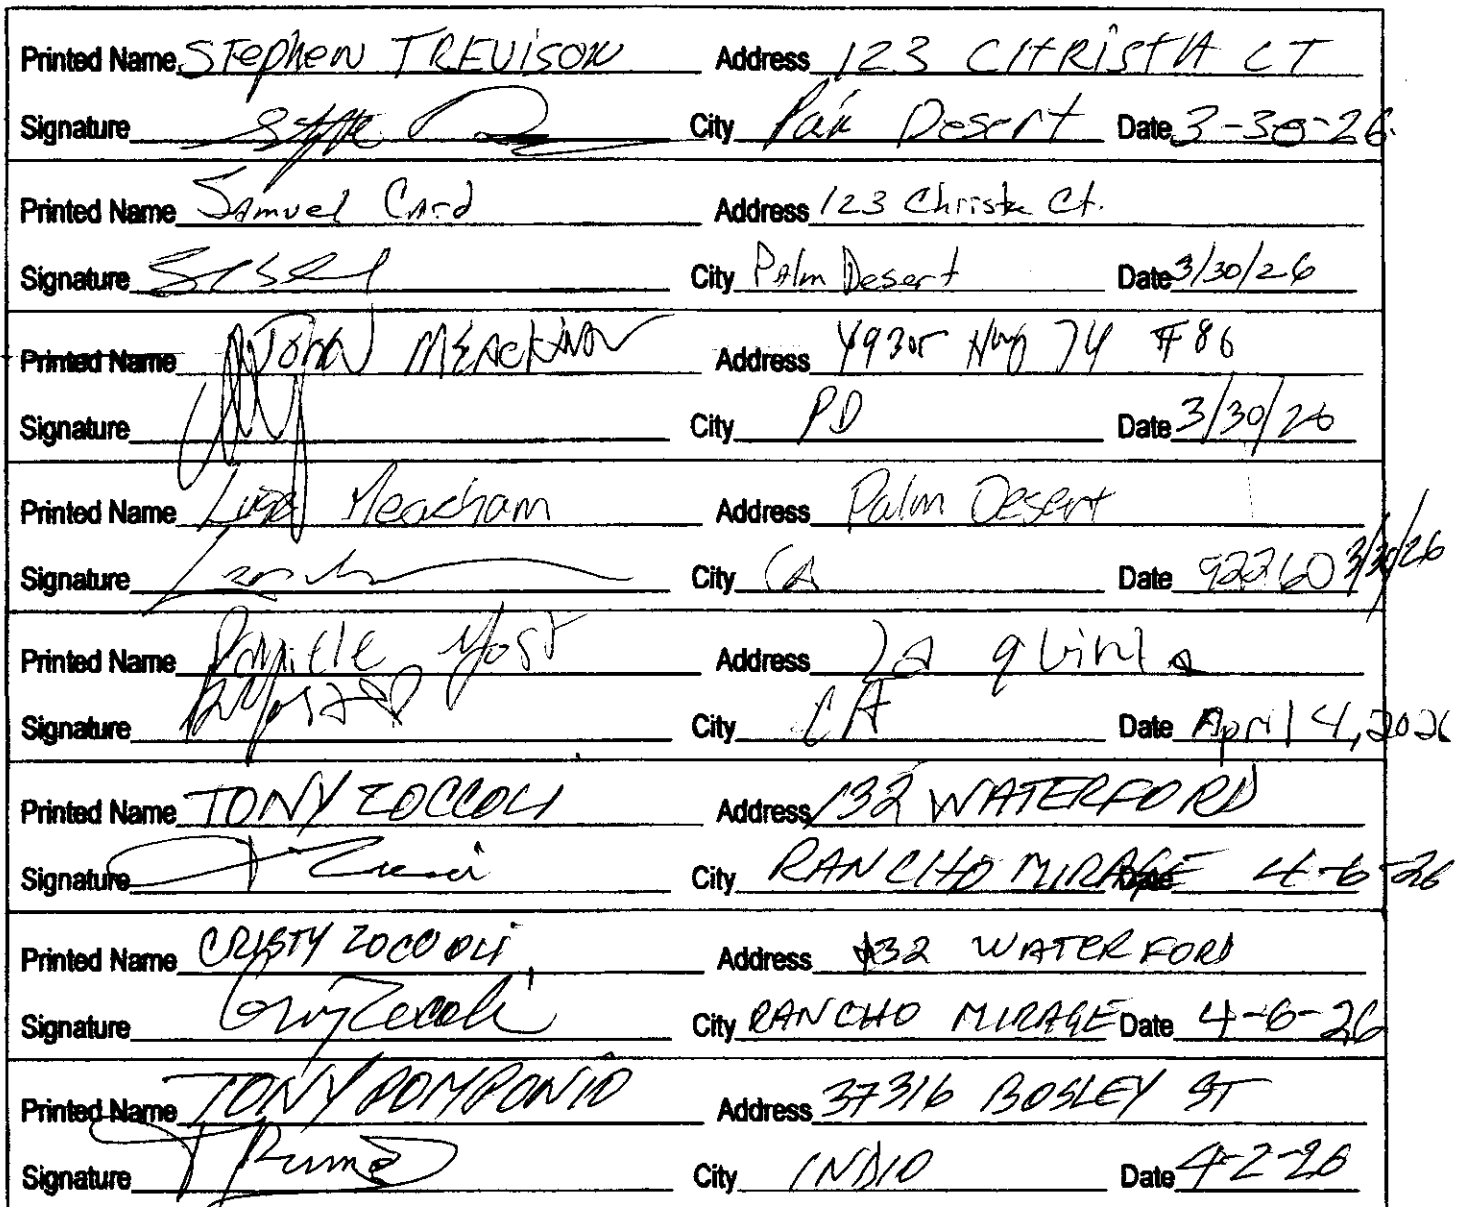 Printed Name Stephen TREVISON Address 123 CHRISTA CT
Signature City Desert Date 3-30-26
Printed Name Samuel Card Address 123 Christa Ct.
Signature City Palm Desert Date 3/30/26
Printed Name John MEACHAM Address 49305 Hwy 74 #86
Signature City PD Date 3/30/26
Printed Name Meacham Address Palm Desert
Signature City CA Date 92260 3/30/26
Printed Name Yost Address La quinta
Signature City CA Date April 4, 2026
Printed Name TONY ZOCCOLI Address 132 WATERFORD
Signature City RANCHO MIRAGE Date 4-6-26
Printed Name CRISTY ZOCCOLI Address 132 WATERFORD
Signature City RANCHO MIRAGE Date 4-6-26
Printed Name TONY POMPONIO Address 37316 BOSLEY ST
Signature City INDIO Date 4-2-26